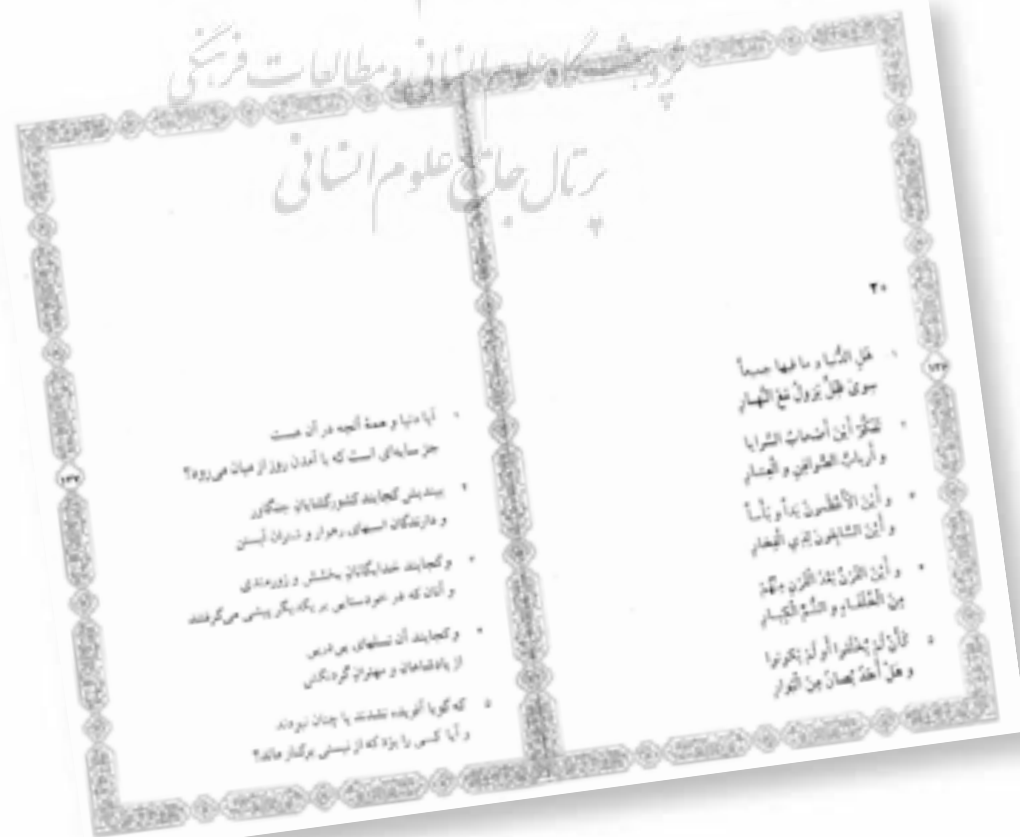 پژوهشگاه علوم انسانی و مطالعات فرهنگی
پرتال جامع علوم انسانی
۳۰
۱ هَلِ الدُّنيا و ما فيها جميعاً
سِوىٰ ظِلٍّ يَزولُ مَعَ النَّهـارِ
۲ تَفَكَّرْ أينَ أصْحابُ السَّرايا
و أربابُ الصَّوافِنِ و العِشـارِ
۳ و أينَ الأعْظَمونَ يَداً و بَأساً
و أينَ السّابِقونَ لِذِي الْفِخارِ
۴ و أينَ القَرْنُ بَعْدَ الْقَرنِ مِنْهُمْ
مِنَ الْخُلَفـاءِ و الشُّمِّ الْكِبـارِ
۵ كَأنْ لَمْ يُخْلَقوا أو لَمْ يَكونوا
و هَلْ أحَدٌ يُصانُ مِنَ الْبَوارِ
۱ آیا دنیا و همهٔ آنچه در آن هست
جز سایه‌ای است که با آمدن روز از میان می‌رود؟
۲ بیندیش کجایند کشورگشایان جنگاور
و دارندگان اسبهای رهوار و شتران آبستن
۳ و کجایند خدایگانان بخشش و زورمندی
و آنان که در خودستایی بر یکدیگر پیشی می‌گرفتند
۴ و کجایند آن نسلهای پی‌درپی
از پادشاهان و مهتران گردنکش
۵ که گویا آفریده نشدند یا چنان نبودند
و آیا کسی را بود که از نیستی برکنار ماند؟
۱۳۷